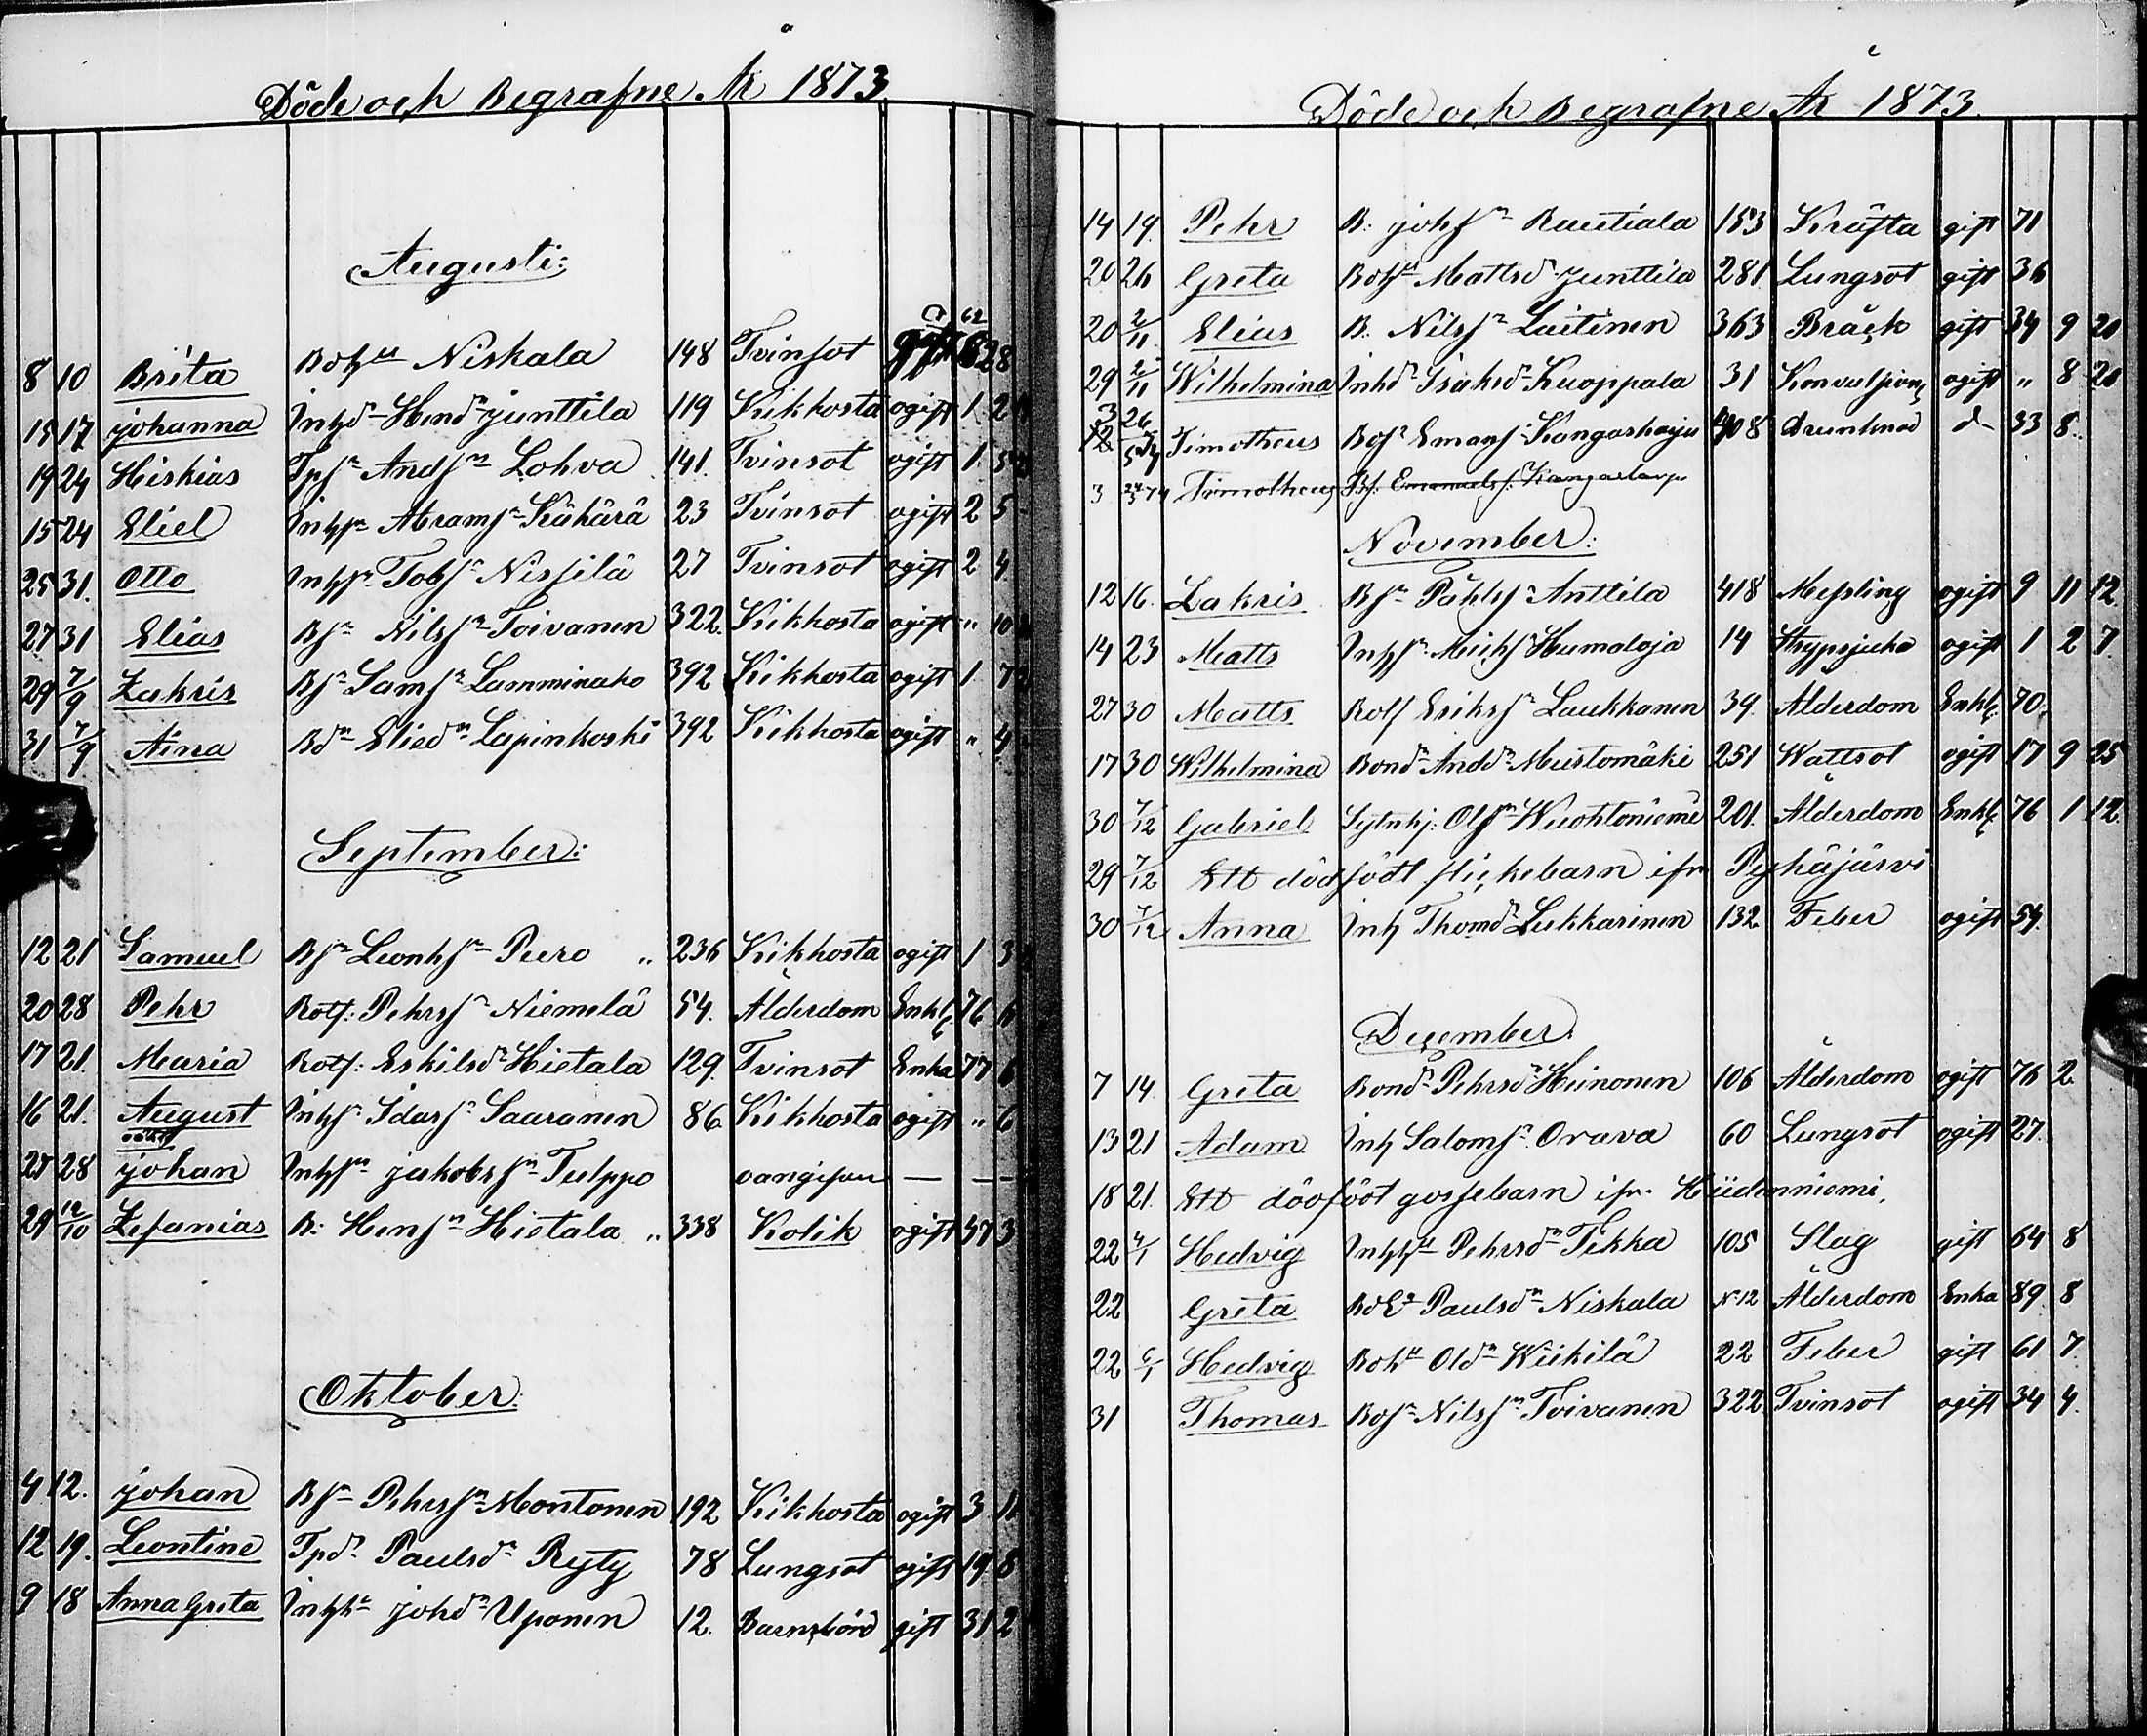 Döde och Begrafne År 1873
Augusti:
8 10 Brita Bdhu Niskala 148 Tvinsot 62 28
15 17 johanna Inhdr Hendr junttila 119 Kikhosta ogift 1 2
19 24 Hiskias Tpsn Andsn Lohva 141. Tvinsot ogift 1.
15 24 Eliel Inhsn Abramsn Kähärä 23 Tvinsot ogift 2 5
25 31. Otto Inhsn Tobsn Nissilä 27 Tvinsot ogift 2 4
27 31 Elias Bsn Nilssn Toivanen 322. Kikhosta ogift " 10
29 7/9 Zakris Bsn Samsn Lamminaho 392 Kikhosta ogift 1 7
31 7/9 Aina Bdr Eliedr Lapinkoski 392 Kikhosta ogift " 4
September:
12 21 Samuel Bsn Leonhsn Puro " 236 Kikhosta ogift 1 3
20 28 Pehr Rotf: Pehrssn Niemelä 54. Ålderdom Enkl: 76
17 21. Maria Rotf: Eskilsdr Hietala 129. Tvinsot Enka 77 6
16 21. August Inhsn Idarsn Saaranen 86. Kikhosta ogift " 6
27 28 johan Inhsn jakobssn Tulppo oangifven — —
29 12/10 Zefanias B: Hensn Hietala " 338 Kolik ogift 57 3
Oktober:
4 12. johan Bsn Pehrssn Montonen 192 Kikhosta ogift 3 11
12 19. Leontine Tpdr Paulsdr Ryty 78 Lungsot ogift 19 8
9 18 Anna Greta Inhhu johdr Uponen 12. Barnsbörd gift 31 2
Döde och Begrafne År 1873.
14 19. Pehr B: johsn Rautiala 153 Kräfta gift 71
20 26 Greta Bdhu Mattsdr junttila 281 Lungsot gift 36
20 2/11 Elias B. Nilssn Laitinen 363 Bråck gift 34 9 20
29 2/11 Wilhelmina Inhdr Isaksdr Kuoppala 31 Konvulsion ogift " 8 20
3 26 Timotheus Bosn Emansn Kangasharju 408 Drunknad d- 33 8..
3 Timotheus Bs: Emanuelss. Kangasharju
November:
12 16. Zakris Bsn Påhlssn Anttila 418 Messling ogift 9 11 12.
14 23 Matts Inhsn Michsn Humaloja 14 Strypsjuka ogift 1 2 7.
27 30 Matts Rotf Erikssn Laukkanen 39. Ålderdom Enkl: 70.
17 30 Wilhelmina Bondr Anddr Mustomäki 251 Wattsot ogift 17 9 25
30 7/12 Gabriel Sytnhj: Olsn Wuohtoniemi 201. Ålderdom Enkl: 76 1 12.
29 7/12 Ett dödfödt flickebarn ifr. Pyhäjärvi
30 7/12 Anna Inh Thomdr Lukkarinen 132 Feber ogift 54.
December.
7 14. Greta Bondr Pehrsdr Heinonen 106 Ålderdom ogift 76 2.
13 21 Adam Inh Salomsn Orava 60 Lungsot ogift 27.
18 21. Ett dödfödt gossebarn ifr. Hiidenniemi.
22 4/1 Hedvig Inhhu Pehrsdr Tikka 105 Slag gift 64 8
22 Greta BdEa Paulsdr Niskala No 12 Ålderdom Enka 89 8
22 6/1 Hedvig Bdhu Oldr Wiikilä 22 Feber gift 61 7
31 Thomas Bdsn Nilssn Toivanen 322. Tvinsot ogift 34 4.